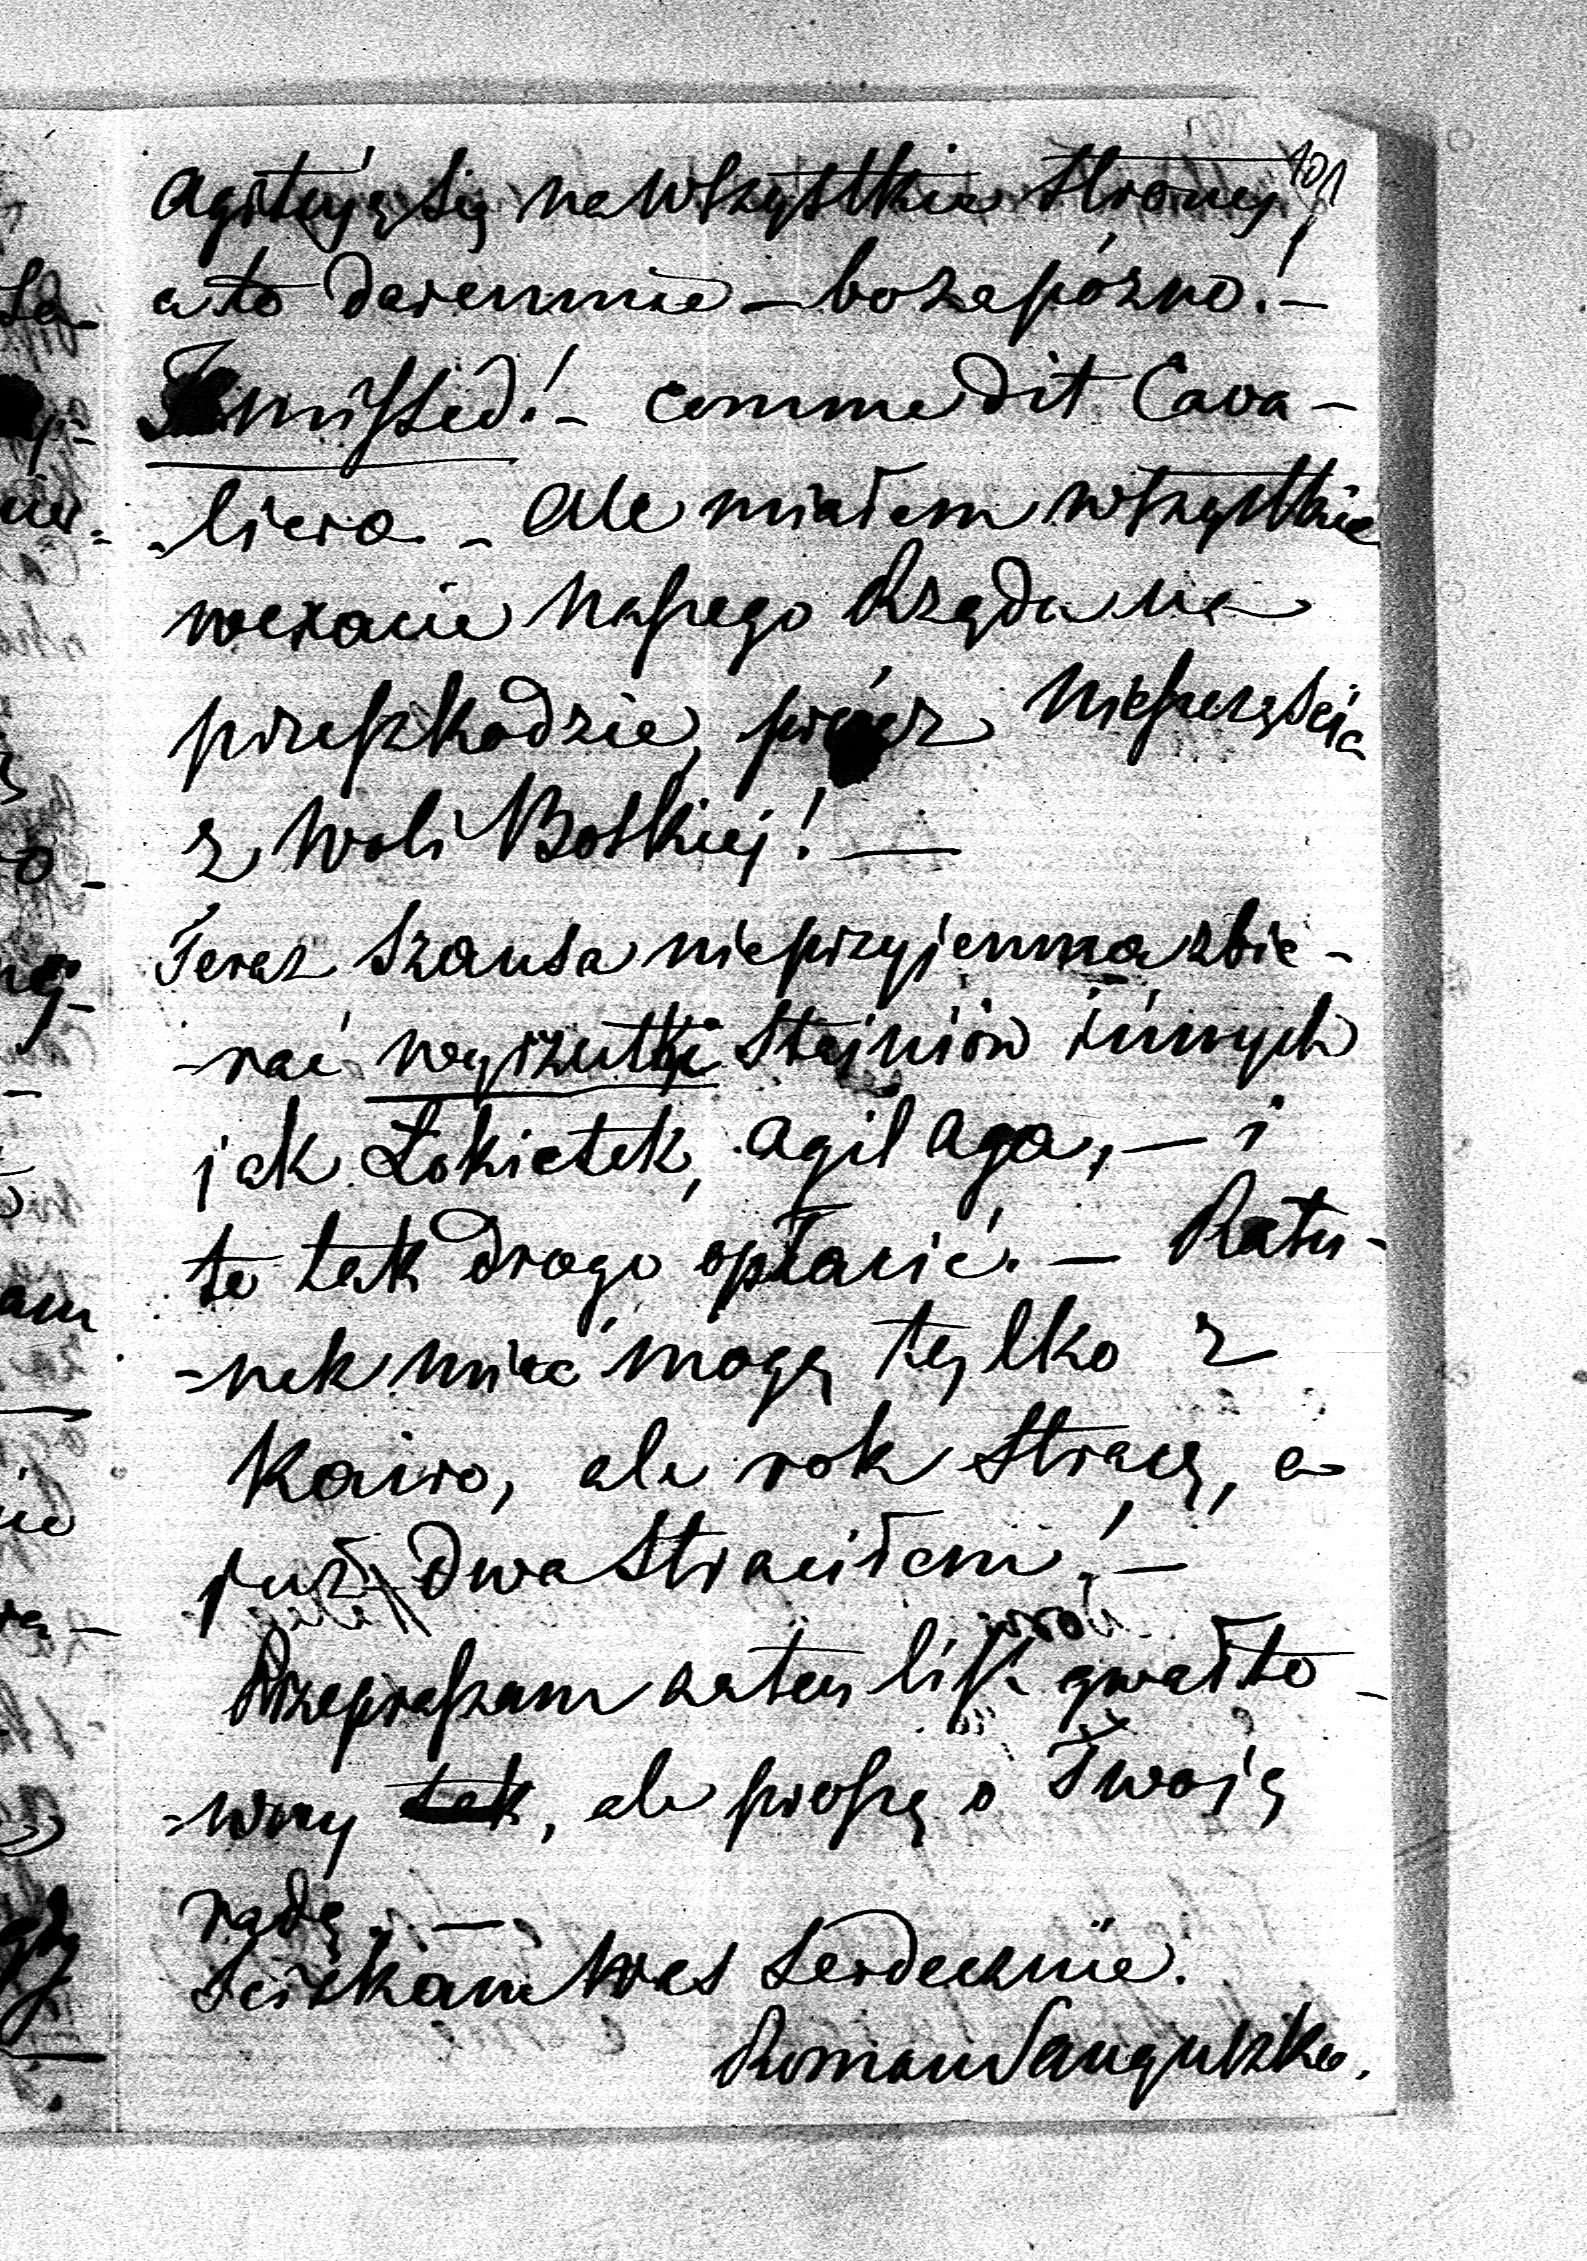 101
Agituję się na wszystkie strony,
a to daremnie – bo za pózno! –
I missed! – comme dit Cava-
-liero. – Ale miałem wszystkie
wexacie naszego Rządu na
przeszkodzie, prócz nieszczęścia
z Woli Boskiej! —
Teraz szansa nieprzyjemna zbie-
-rać wyrzutki Stajniów innych
jak Łokietek, Agil Aga, – i
to tak drogo opłacić. – Ratu-
-nek mieć mogę tylko z
Kairo, ale rok stracę, a
już dwa straciłem! –
Przepraszam za ten list gwałto-
-wny, ale proszę o Twoję
radę. —
Sciskam Was serdecznie.
Roman Sanguszko.